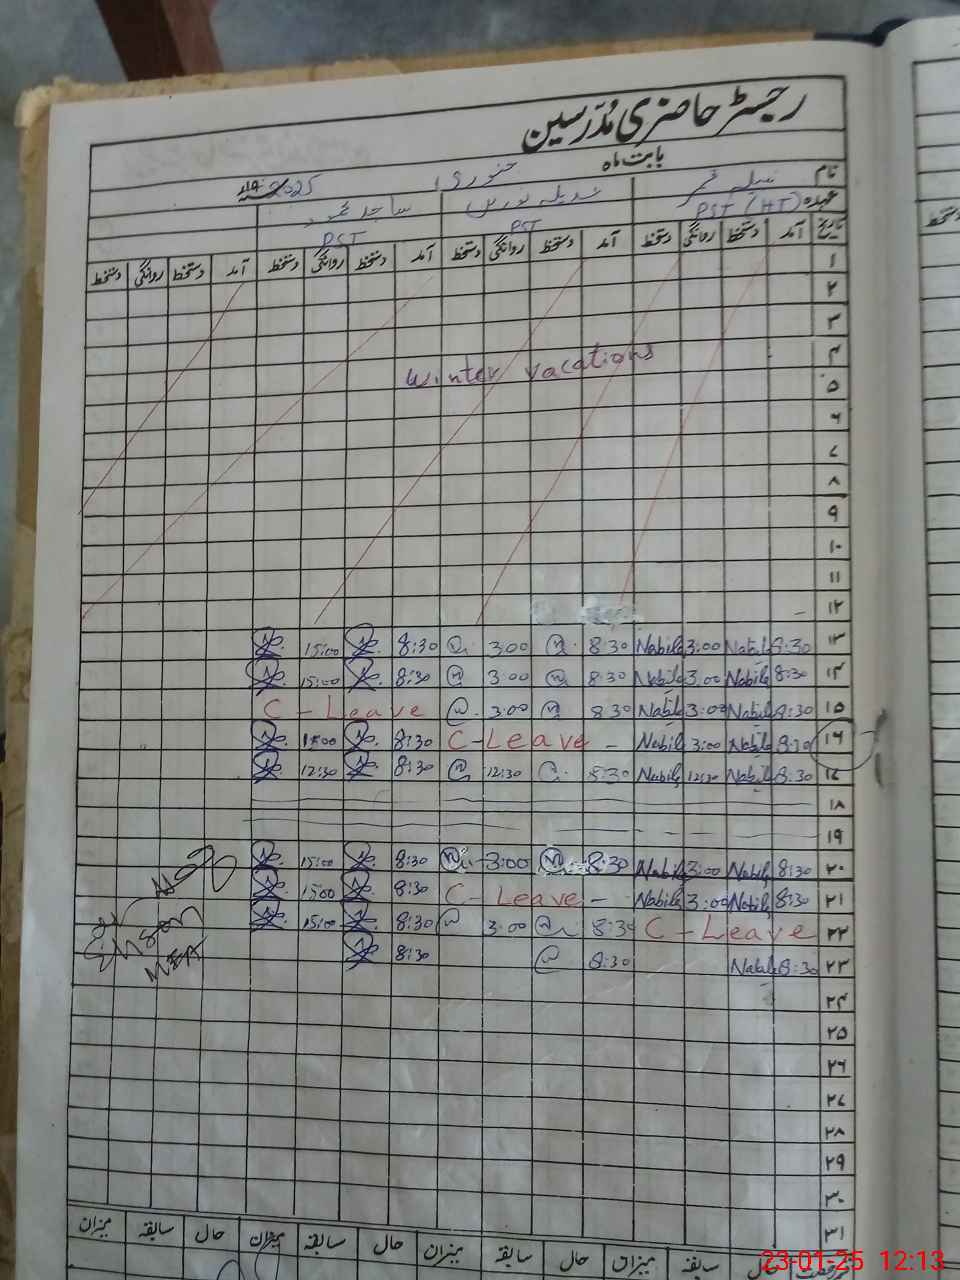 رجسٹر حاضری مدرسین
بابت ماہ جنوری 2025
نام نبیلہ
عہدہ PST (HT) PST PST
تاریخ آمد دستخط روانگی دستخط آمد دستخط روانگی دستخط آمد دستخط روانگی دستخط آمد دستخط روانگی دستخط
۱
۲
۳
۴
Winter vacations
۵
۶
۷
۸
۹
۱۰
۱۱
۱۲
۱۳ 8:30 Nabila 3:00 Nabila 8:30 3:00 8:30 15:00
۱۴ 8:30 Nabila 3:00 Nabila 8:30 3:00 8:30 15:00
۱۵ 8:30 Nabila 3:00 Nabila 8:30 3:00 C - Leave
۱۶ 8:30 Nabila 3:00 Nabila C - Leave - 8:30 15:00
۱۷ 8:30 Nabila 12:30 Nabila 8:30 12:30 8:30 12:30
۱۸
۱۹
۲۰ 8:30 Nabila 3:00 Nabila 8:30 3:00 8:30 15:00
۲۱ 8:30 Nabila 3:00 Nabila C - Leave - 8:30 1500
۲۲ C - Leave 8:30 3:00 8:30 15:00
۲۳ 8:30 Nabila 8:30 8:30
Ehsan
MEA
۲۴
۲۵
۲۶
۲۷
۲۸
۲۹
۳۰
۳۱
رخصت حال سابقہ میزان حال سابقہ میزان حال سابقہ میزان حال سابقہ میزان
23-01-25 12:13